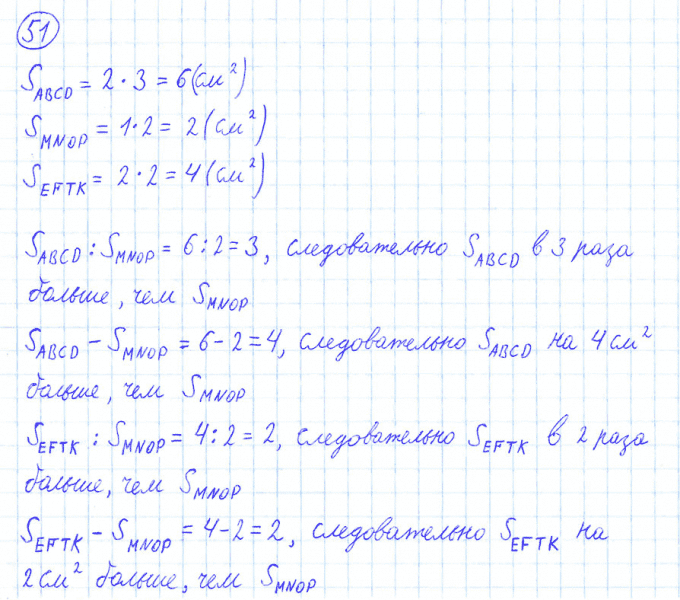 51
S_ABCD = 2 · 3 = 6 (см²)
S_MNOP = 1 · 2 = 2 (см²)
S_EFTK = 2 · 2 = 4 (см²)
S_ABCD : S_MNOP = 6 : 2 = 3, следовательно S_ABCD в 3 раза
больше, чем S_MNOP
S_ABCD – S_MNOP = 6 – 2 = 4, следовательно S_ABCD на 4 см²
больше, чем S_MNOP
S_EFTK : S_MNOP = 4 : 2 = 2, следовательно S_EFTK в 2 раза
больше, чем S_MNOP
S_EFTK – S_MNOP = 4 – 2 = 2, следовательно S_EFTK на
2 см² больше, чем S_MNOP